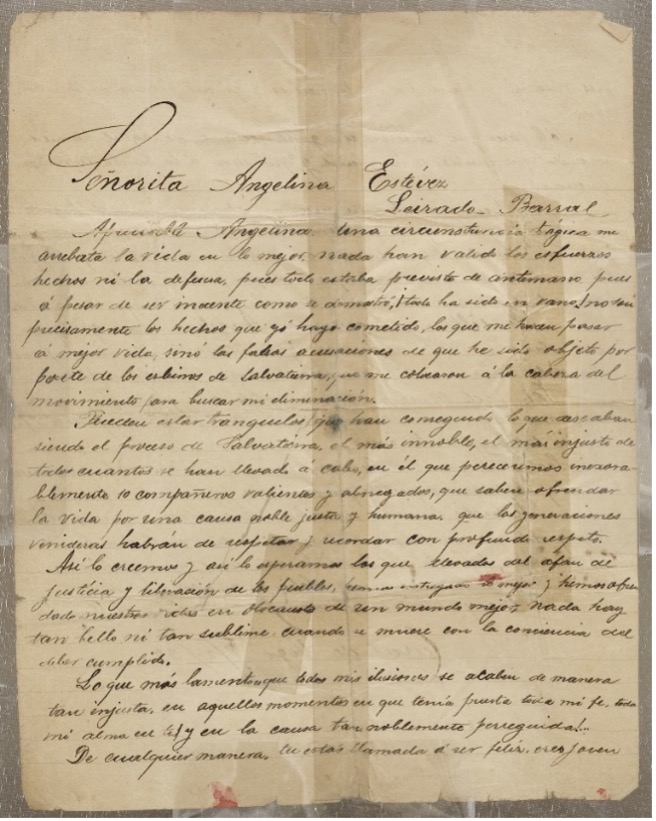 Señorita Angelina Estévez
Leirado - Barral
Apreciable Angelina: Una circunstancia trágica me
arrebata la vida en lo mejor, nada han valido los esfuerzos
hechos ni la defensa, pues todo estaba previsto de antimano, pues
á pesar de ser inocente como se demostró, ¡todo ha sido en vano! no son
precisamente los hechos que yó haya cometido, los que me hacen pasar
á mejor vida, sinó las falsas acusaciones de que he sido objeto por
parte de los esbirros de Salvatierra, que me colocaron á la cabeza del
movimiento para buscar mi eliminación.
Pueden estar tranquilos, que han conseguido lo que deseaban
siendo el proceso de Salvatierra, el más innoble, el más injusto de
todos cuantos se han llevado á cabo, en él que perecemos inexora-
blemente 10 compañeros valientes y abnegados, que saben ofrendar
la vida por una causa noble justa y humana, que las generaciones
venideras habrán de respetar y recordar con profundo respeto.
Asi lo creemos y asi lo esperamos los que llevados del afan de
justicia y liberación de los pueblos, hemos entregado lo mejor y hemos ofren
dado nuestras vidas en olocausto de un mundo mejor, nada hay
tan bello ni tan sublime, cuando se muere con la conciencia del
deber cumplido.
Lo que más lamento, que todas mis ilusiones se acaben de manera
tan injusta, en aquellos momentos en que tenía puesta toda mi fe, toda
mi alma en ti! y en la causa tan noblemente perseguida!...
De cualquier manera, tu estás llamada á ser feliz, eres joven